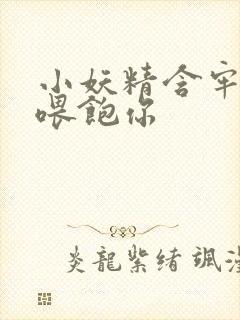 小妖精含牢
喂飽你
炎龍紫绪 颯漫